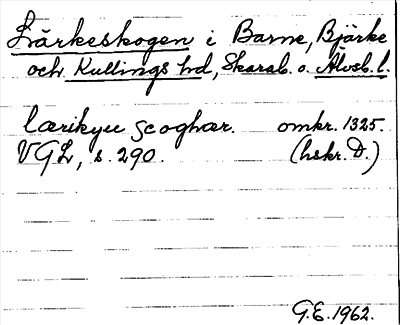 Lärkeskogen i Barne, Bjärke
och Kullings hd, Skarab. o. Älvsb. l.
lærikyu scoghær. omkr. 1325.
VGL, s. 290. (hskr. D.)
G.E. 1962.